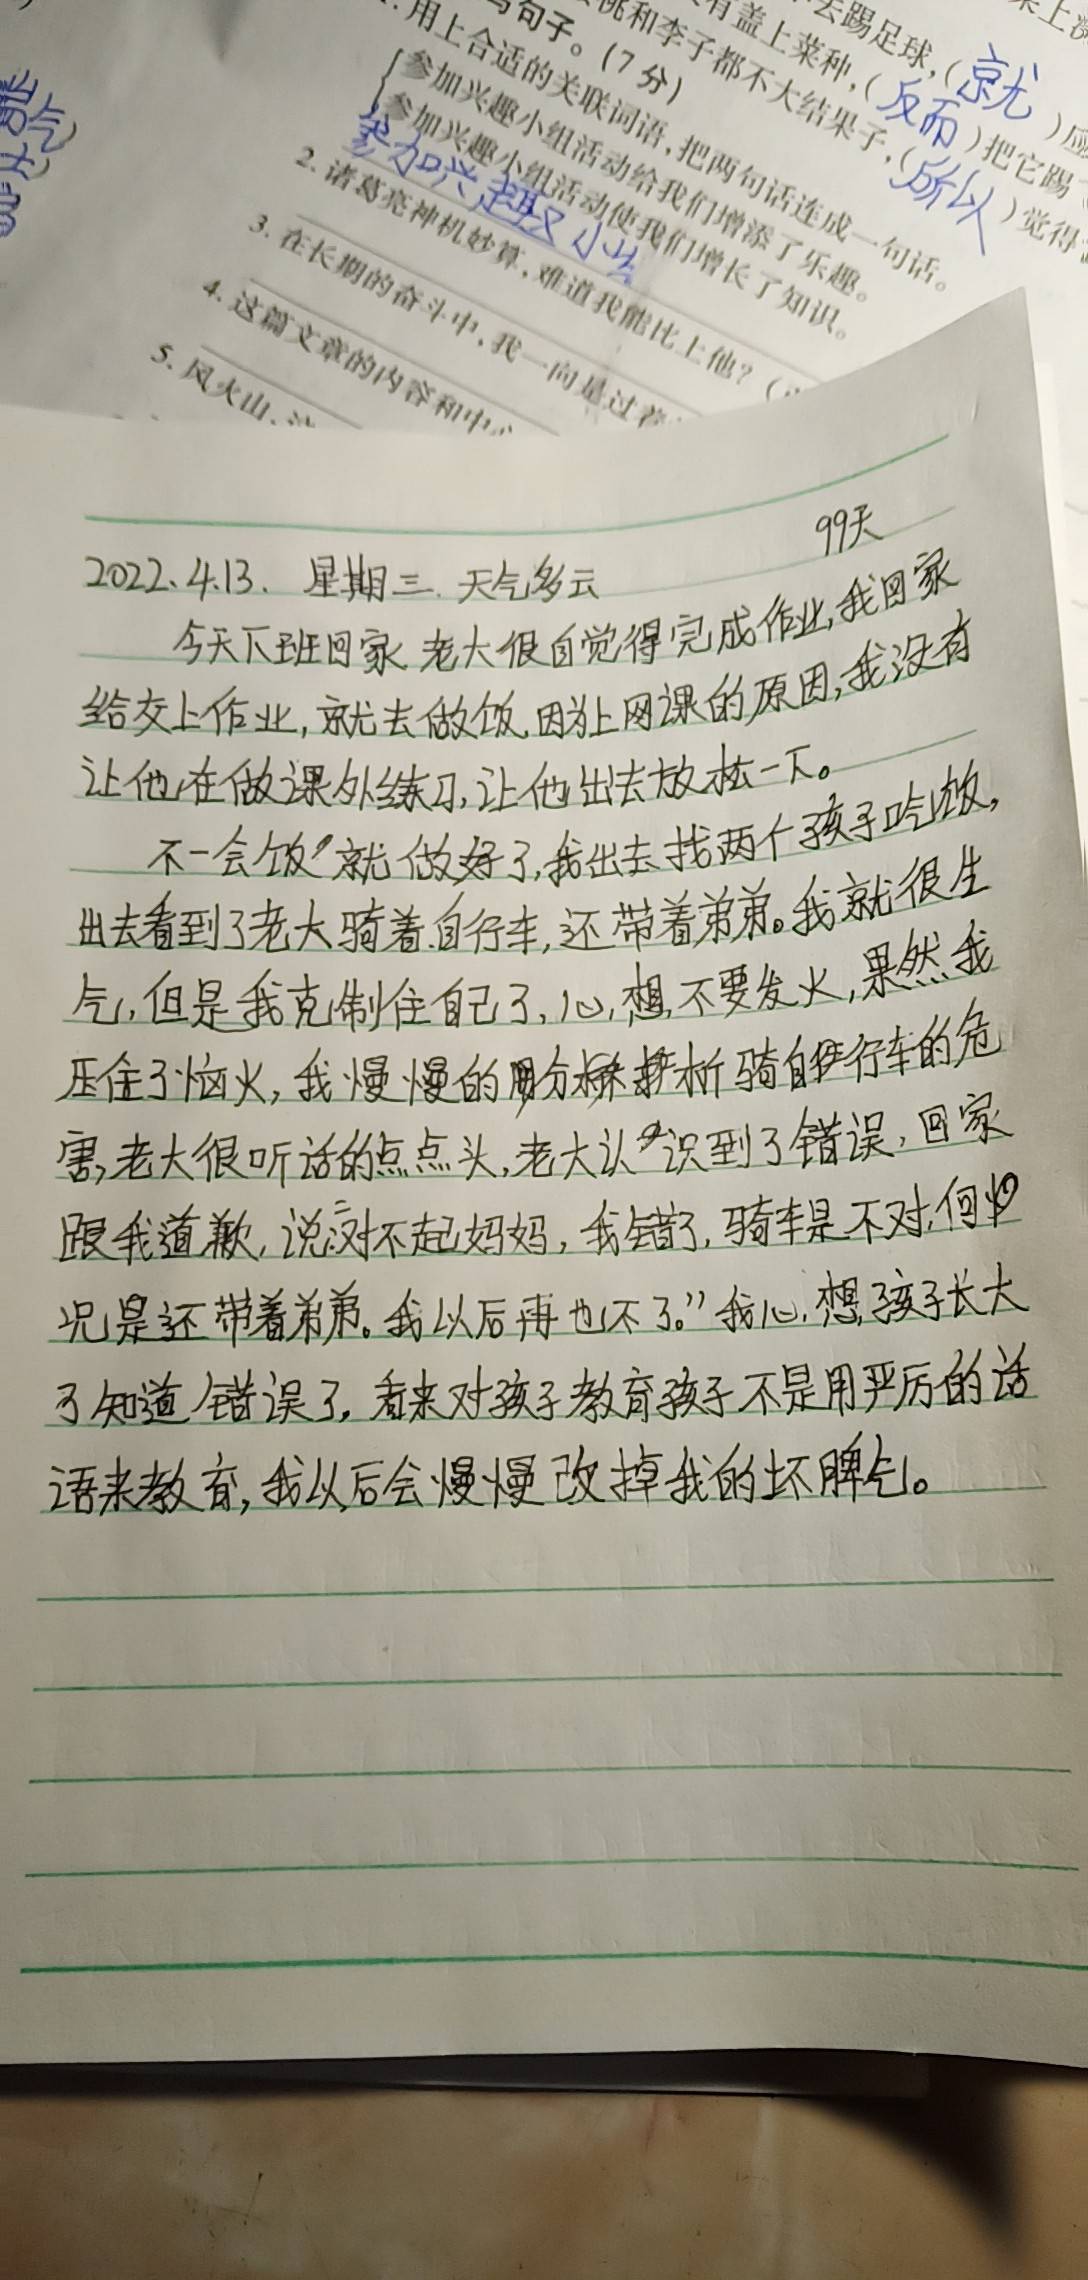 去踢足球,(就)应
有盖上菜种,(反而)把它踢
桃和李子都不大结果子,(所以)觉得
写句子。(7分)
1.用上合适的关联词语,把两句话连成一句话。
参加兴趣小组活动给我们增添了乐趣。
参加兴趣小组活动使我们增长了知识。
参加兴趣小
2.诸葛亮神机妙算,难道我能比上他?(
3.在长期的奋斗中,我一向是过着
4.这篇文章的内容和中心
5.风火山、
99天
2022.4.13. 星期三. 天气多云
今天下班回家,老大很自觉得完成作业,我回家
给交上作业,就去做饭,因为上网课的原因,我没有
让他在做课外练习,让他出去放松一下。
不一会饭就做好了,我出去找两个孩子吃饭,
出去看到了老大骑着自行车,还带着弟弟。我就很生
气,但是我克制住自己了,心想,不要发火,果然我
压住了恼火,我慢慢的分析骑自行车的危
害,老大很听话的点点头,老大认识到了错误,回家
跟我道歉,说:“对不起妈妈,我错了,骑车是不对,何
况是还带着弟弟。我以后再也不了。”我心想,孩子长大
了知道错误了,看来对孩子教育孩子不是用严厉的话
语来教育,我以后会慢慢改掉我的坏脾气。